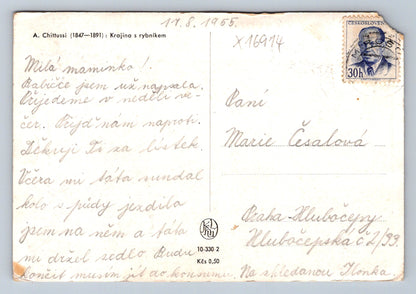 17.8.1955.
A. Chittussi (1847—1891): Krajina s rybníkem
X16974
ČESKOSLOVEN
30h
Milá maminko!
Babičce jsem už napsala.
Přijedeme v neděli ve-
čer. Přijď nám naproti.
Děkuji Ti za lístek.
Včera mi táta sundal
kolo s půdy jezdila
jsem na něm a táta
mi držel sedlo. Budu
končit musím jít do konsumu. Na shledanou Ilonka.
Paní
Marie Česalová
Praha-Hlubočepy
Hlubočepská č.2/99.
10-330 2
Kčs 0,50